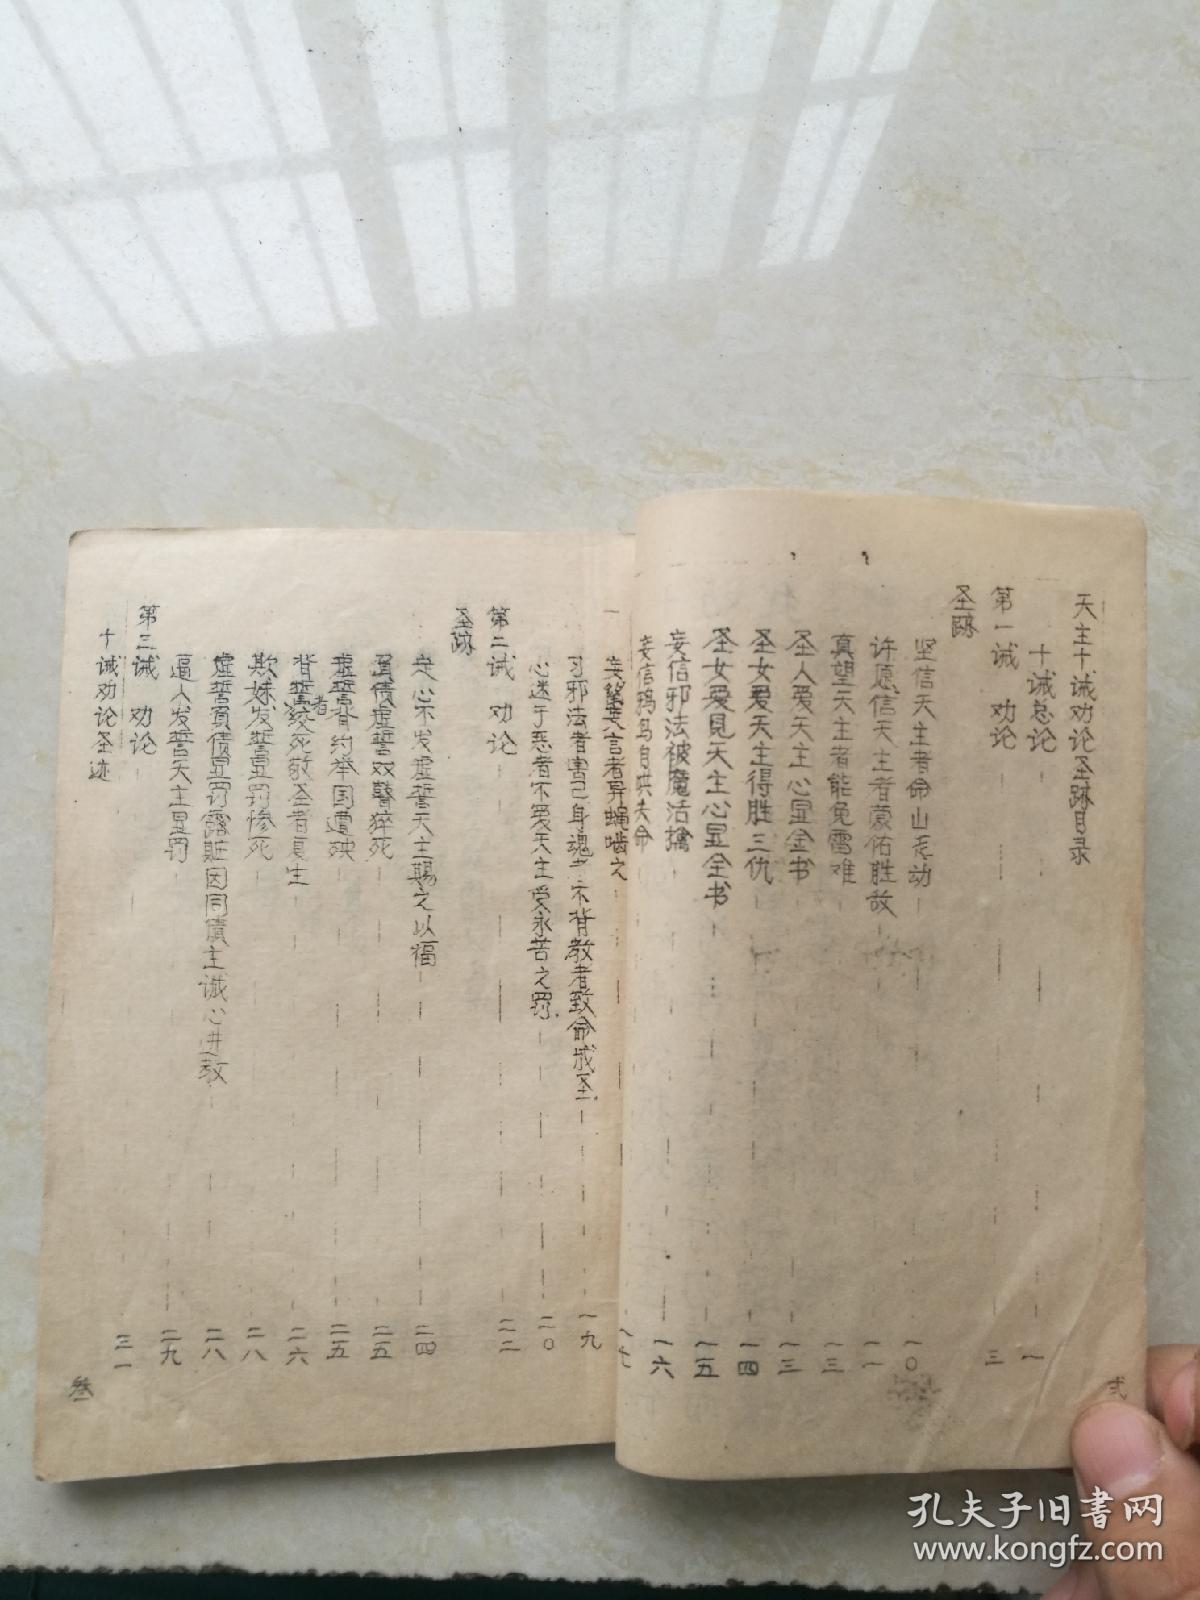 天主十诫劝论圣跡目录
十诫总论 一
第一诫 劝论 三
圣跡
坚信天主者命山走动 一〇
许愿信天主者蒙佑胜敌 一一
真望天主者能免雷难 一三
圣人爱天主心显金书 一三
圣女爱天主得胜三仇 一四
圣女爱見天主心显全书 一五
妄信邪法被魔活擒 一六
妄信鸦鸟自烘失命 一七
妄言者异蝇啮之
习邪法者害己身魂 不背教者致命成圣 一九
心迷于恶者不爱天主受永苦之罚 二〇
第二诫 劝论 二二
圣跡
定心不发虚誓天主賜之以福 二四
負债虚誓双瞽猝死 二五
虚誓背约举国遭殃 二五
背誓者绞死敬圣者复生 二六
欺妹发誓显罚惨死 二八
虚誓負债显罚露赃因同债主诚心进教 二八
逼人发誓天主显罚 二九
第三诫 劝论 三一
十诫劝论圣迹
弍
叁
孔夫子旧书网
www.kongfz.com